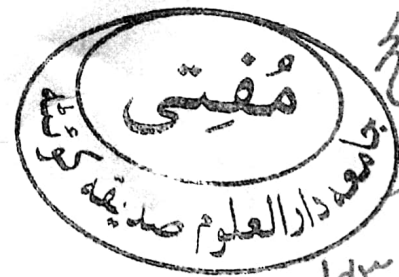 مُفتِی
جامعه دار العلوم صدیقه کوئٹه